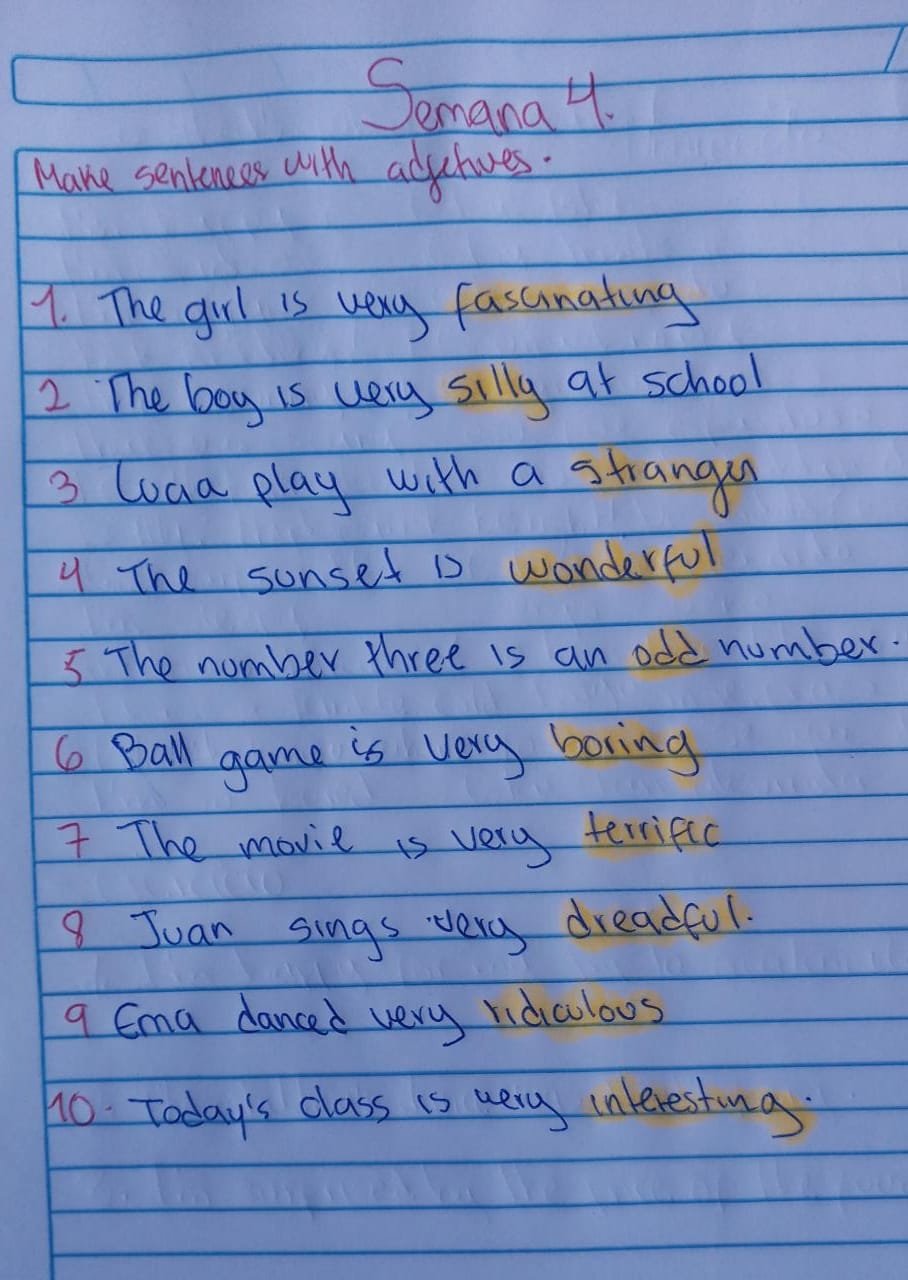 Semana 4.
Make sentences with adjetives.
1. The girl is very fascinating
2 The boy is very silly at school
3 play with a stranger
4 The sunset is wonderful
5 The number three is an odd number.
6 Ball game is very boring
7 The movie is very terrific
8 Juan sings very dreadful.
9 Ema danced very ridiculous
10. Today's class is very interesting.